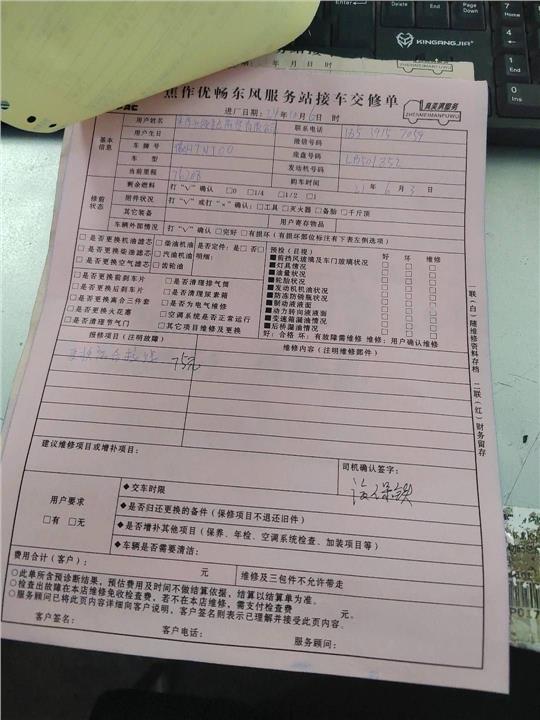 Enter
Alt
Ctrl
End
Page Down
KINGANGJIA
7 Home
4
1 End
0 Ins
年 月 日 时
焦作优畅东风服务站接车交修单
真实满服务
ZHENMEIMANFUWU
进厂日期: 21年10月6日 时
基本信息
用户姓名
联系电话
用户生日
微信号码
车牌号
底盘号码
LB501352
车型
发动机号码
当前里程
76208
购车时间
21 6 3
修前状态
剩余燃料 打“V”确认 □0 □1/4 □1/2 □1
附件状况 打“V”或打“×”确认:□工具 □灭火器 □备胎 □千斤顶
其它装备 用户寄存物品
车辆外部情况 打“V”确认 □完好 □有损坏(有损坏部位标注有下表左侧选项)
□是否更换机油滤芯 □柴油机油 是否定件: 是□ 否□
□是否更换柴油滤芯 □汽油机油 明细:
□是否更换空气滤芯 □齿轮油
□是否更换前刹车片 □是否清理排气筒
□是否更换后刹车片 □是否清理尿素箱
□是否更换离合三件套 □是否为电气维修
□是否更换火花塞 □空调系统是否正常运行
□是否清理节气门 □其它项目维修及更换
预检(目视) 好 坏 维修
■前挡风玻璃及车门玻璃状况
■灯具情况
■油量状况
■轮胎状况
■发动机机油状况
■防冻防锈瓶状况
■制动液液面
■动力转向液液面
■变速箱漏油情况
■后桥漏油情况
好:合格 坏:有故障需维修 维修:用户确认维修
报修项目(注明故障)
维修内容(注明维修部件)
75元
建议维修项目或增补项目:
司机确认签字:
用户要求
□有 □无
◆交车时限
◆是否归还更换的备件(保修项目不退还旧件)
◆是否增补其他项目(保养、年检、空调系统检查、加装项目等)
◆车辆是否需要清洁:
费用合计(客户): 元 维修及三包件不允许带走
○此单所含预诊断结果,预估费用及时间不做结算依据,结算以结算单为准。
○检查出故障在本店维修免收检查费,若不在本店维修,需支付检查费 元。
○服务顾问已将此页内容详细向客户说明,客户签名则表示已理解并接受此页内容。
客户签名: 客户电话: 服务顾问:
一联(白)随维修资料存档 二联(红)财务留存